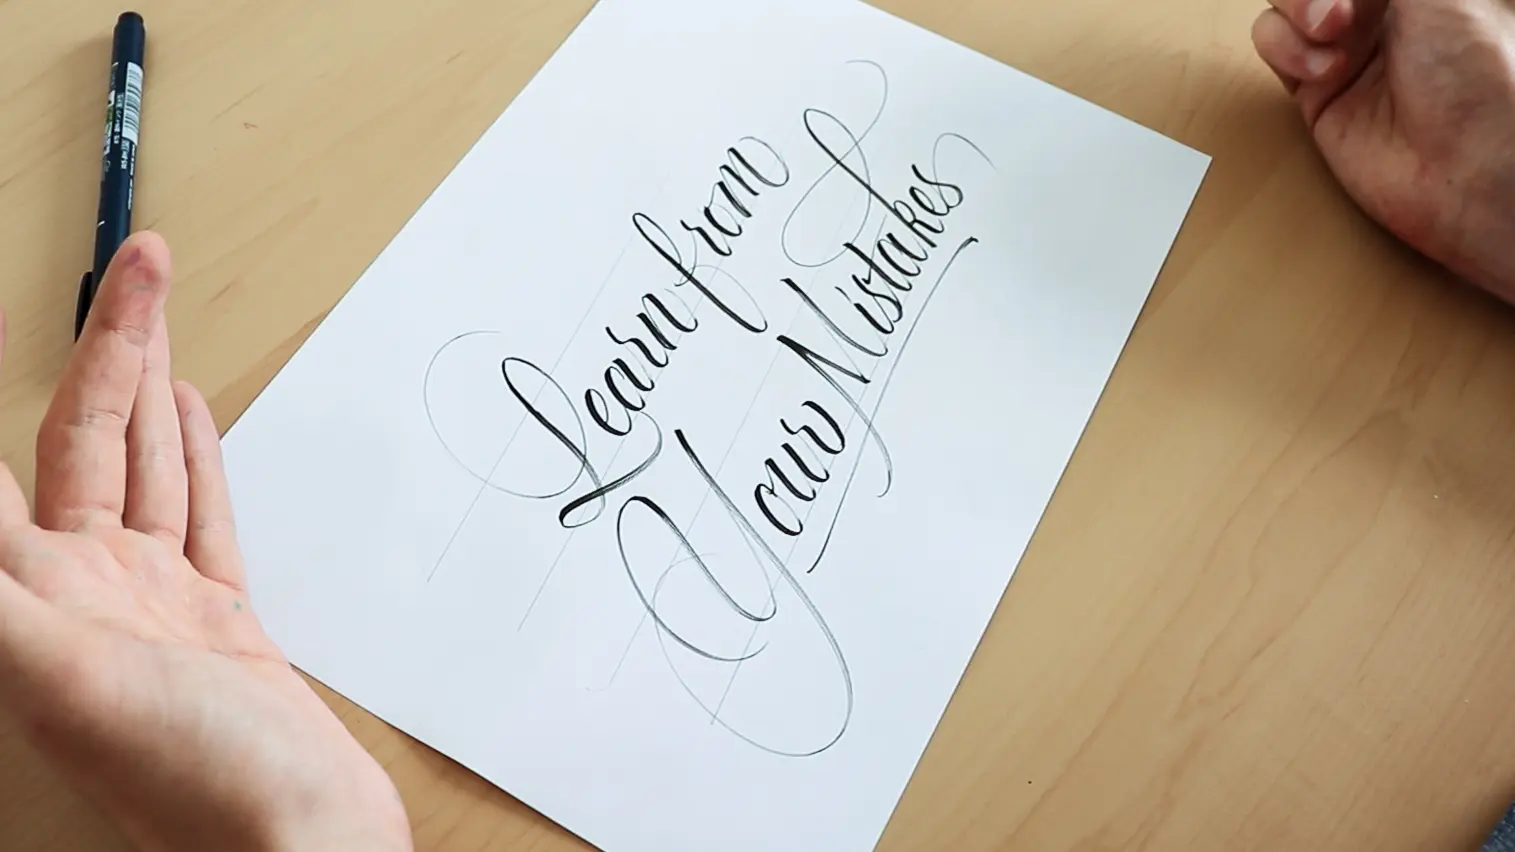 Learn from
Your Mistakes